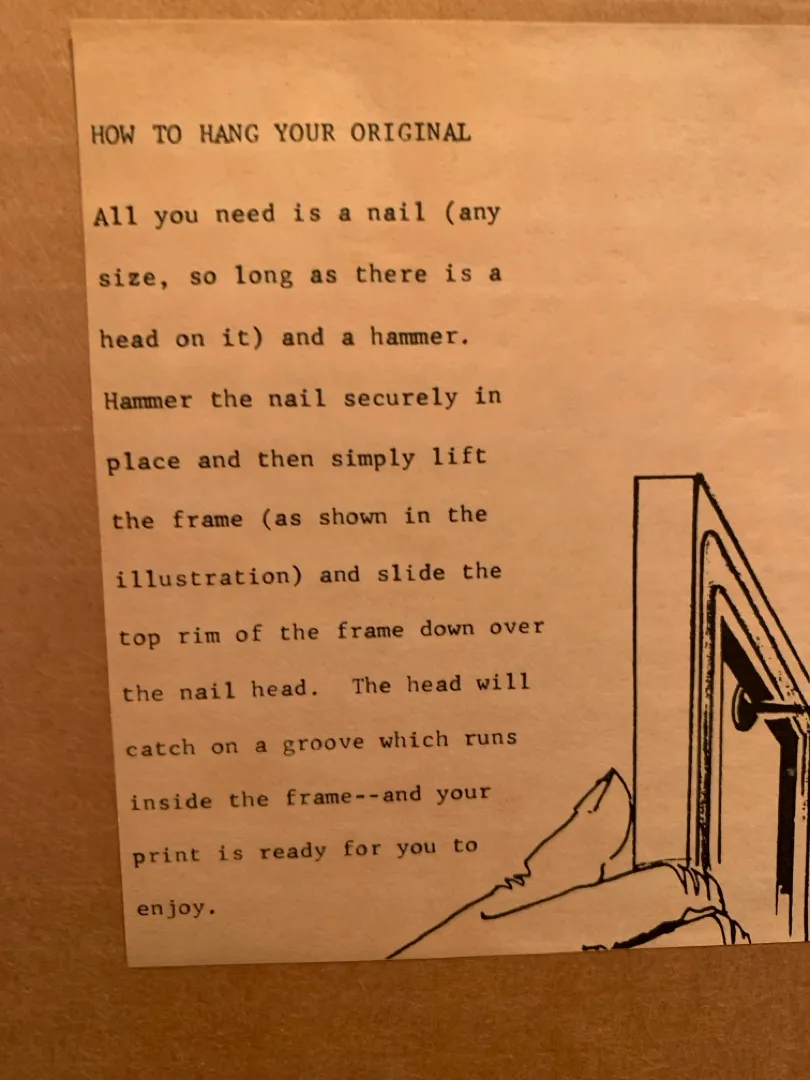 HOW TO HANG YOUR ORIGINAL
All you need is a nail (any
size, so long as there is a
head on it) and a hammer.
Hammer the nail securely in
place and then simply lift
the frame (as shown in the
illustration) and slide the
top rim of the frame down over
the nail head.  The head will
catch on a groove which runs
inside the frame--and your
print is ready for you to
enjoy.